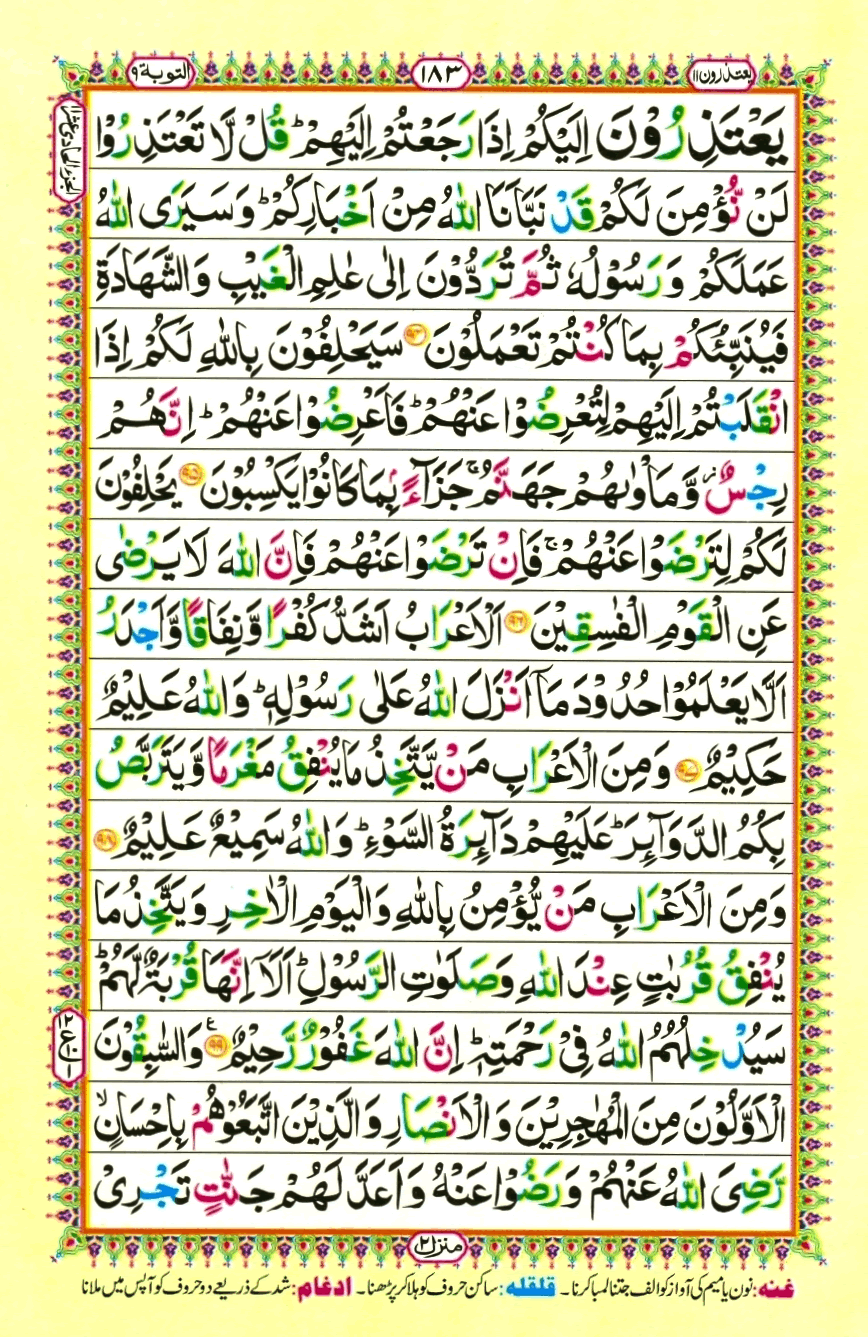 یعتذرون ۱۱
۱۸۳
التوبة ۹
الجزء الحادی عشر ۱۱
يَعْتَذِرُوْنَ اِلَيْكُمْ اِذَا رَجَعْتُمْ اِلَيْهِمْ ؕ قُلْ لَّا تَعْتَذِرُوْا
لَنْ نُّؤْمِنَ لَكُمْ قَدْ نَبَّاَنَا اللّٰهُ مِنْ اَخْبَارِكُمْ ؕ وَ سَيَرَى اللّٰهُ
عَمَلَكُمْ وَ رَسُوْلُهٗ ثُمَّ تُرَدُّوْنَ اِلٰى عٰلِمِ الْغَيْبِ وَ الشَّهَادَةِ
فَيُنَبِّئُكُمْ بِمَا كُنْتُمْ تَعْمَلُوْنَ ۹۴ سَيَحْلِفُوْنَ بِاللّٰهِ لَكُمْ اِذَا
انْقَلَبْتُمْ اِلَيْهِمْ لِتُعْرِضُوْا عَنْهُمْ ؕ فَاَعْرِضُوْا عَنْهُمْ ؕ اِنَّهُمْ
رِجْسٌ ؗ وَّ مَاْوٰىهُمْ جَهَنَّمُ ۚ جَزَآءًۢ بِمَا كَانُوْا يَكْسِبُوْنَ ۹۵ يَحْلِفُوْنَ
لَكُمْ لِتَرْضَوْا عَنْهُمْ ۚ فَاِنْ تَرْضَوْا عَنْهُمْ فَاِنَّ اللّٰهَ لَا يَرْضٰى
عَنِ الْقَوْمِ الْفٰسِقِيْنَ ۹۶ اَلْاَعْرَابُ اَشَدُّ كُفْرًا وَّ نِفَاقًا وَّ اَجْدَرُ
اَلَّا يَعْلَمُوْا حُدُوْدَ مَاۤ اَنْزَلَ اللّٰهُ عَلٰى رَسُوْلِهٖ ؕ وَ اللّٰهُ عَلِيْمٌ
حَكِيْمٌ ۹۷ وَ مِنَ الْاَعْرَابِ مَنْ يَّتَّخِذُ مَا يُنْفِقُ مَغْرَمًا وَّ يَتَرَبَّصُ
بِكُمُ الدَّوَآئِرَ ؕ عَلَيْهِمْ دَآئِرَةُ السَّوْءِ ؕ وَ اللّٰهُ سَمِيْعٌ عَلِيْمٌ ۹۸
وَ مِنَ الْاَعْرَابِ مَنْ يُّؤْمِنُ بِاللّٰهِ وَ الْيَوْمِ الْاٰخِرِ وَ يَتَّخِذُ مَا
يُنْفِقُ قُرُبٰتٍ عِنْدَ اللّٰهِ وَ صَلَوٰتِ الرَّسُوْلِ ؕ اَلَاۤ اِنَّهَا قُرْبَةٌ لَّهُمْ ؕ
سَيُدْخِلُهُمُ اللّٰهُ فِيْ رَحْمَتِهٖ ؕ اِنَّ اللّٰهَ غَفُوْرٌ رَّحِيْمٌ ۹۹ وَ السّٰبِقُوْنَ
الْاَوَّلُوْنَ مِنَ الْمُهٰجِرِيْنَ وَ الْاَنْصَارِ وَ الَّذِيْنَ اتَّبَعُوْهُمْ بِاِحْسَانٍ ۙ
رَّضِيَ اللّٰهُ عَنْهُمْ وَ رَضُوْا عَنْهُ وَ اَعَدَّ لَهُمْ جَنّٰتٍ تَجْرِيْ
منزل ۲
غنه: نون یا میم کی آواز کو الف جتنا لمبا کرنا۔ قلقله: ساکن حروف کو ہلا کر پڑھنا۔ ادغام: شد کے ذریعے دو حروف کو آپس میں ملانا